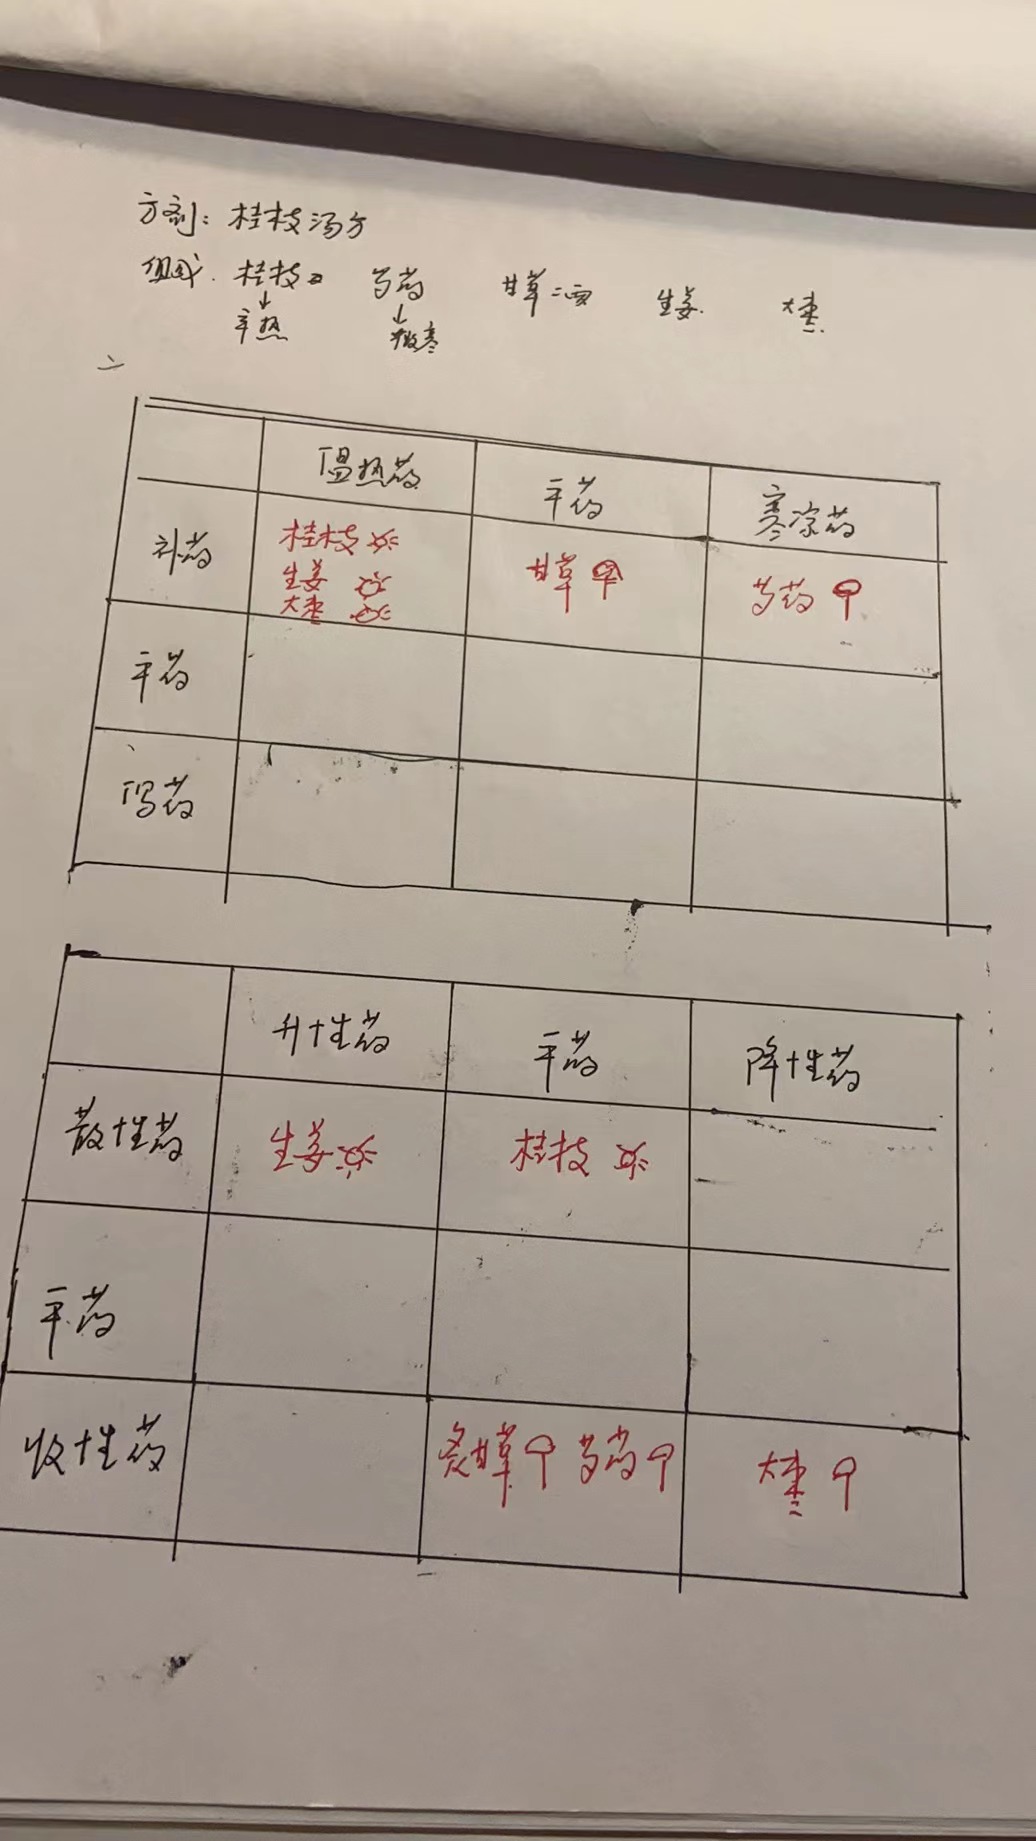 方剂：桂枝汤方
组成．桂枝 芍药 甘草二两 生姜． 大枣
辛热
温热药 平药 寒凉药
补药 桂枝 甘草 芍药
生姜
大枣
平药
泻药
升性药 平药 降性药
散性药 生姜 桂枝
平药
收性药 炙甘草 芍药 大枣